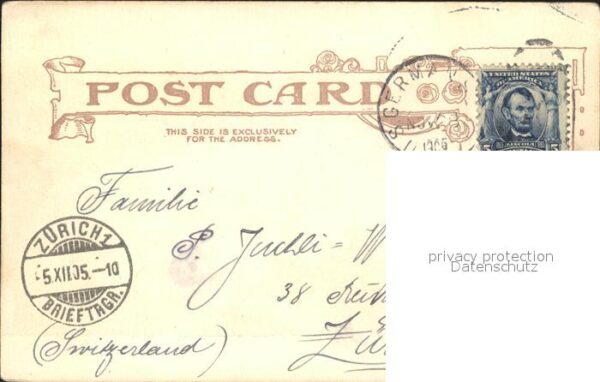 POST CARD
THIS SIDE IS EXCLUSIVELY
FOR THE ADDRESS.
GERMAN
NOV
1905
UNITED STATES
OF AMERICA
LINCOLN
5
Familie
ZÜRICH 1
5.XII.05.-10
BRIEFTRGR.
S. Juchli=W
38
Zü
(Switzerland)
privacy protection
Datenschutz